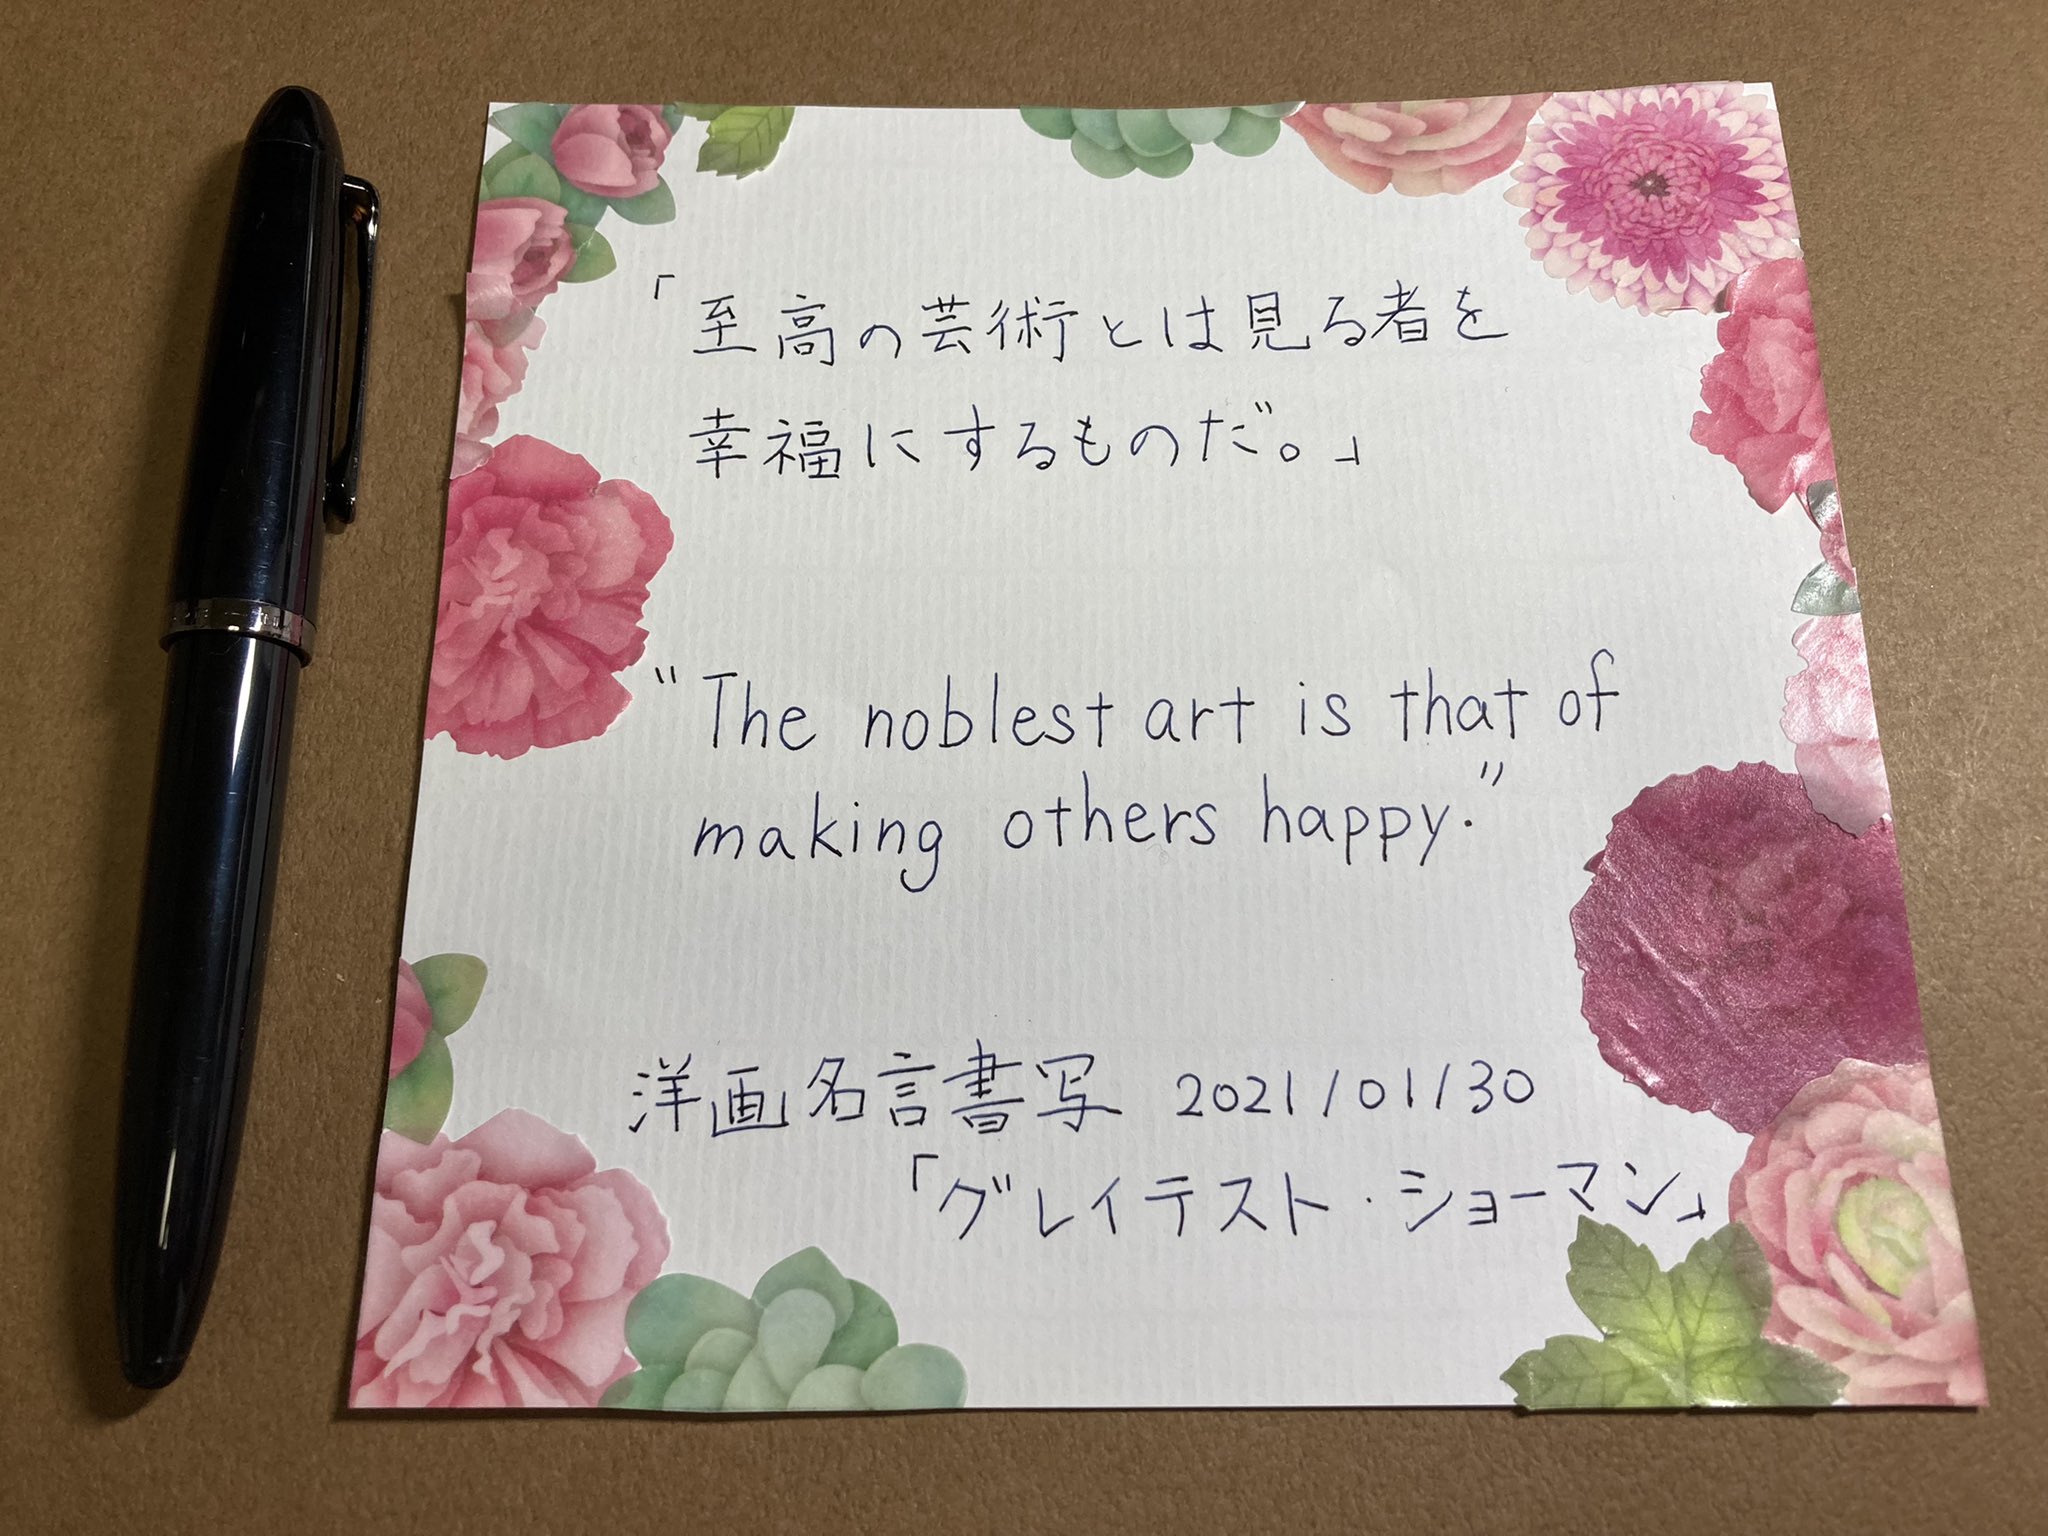 「至高の芸術とは見る者を
幸福にするものだ。」
"The noblest art is that of
making others happy."
洋画名言書写 2021/01/30
「グレイテスト・ショーマン」